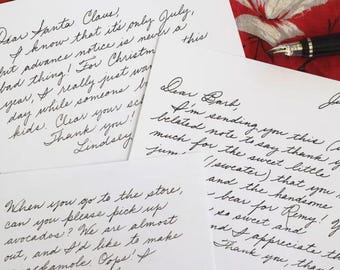 Dear Santa Claus,
I know that it's only July,
but advance notice is never a
bad thing! For Christmas this
year, I really just want
day while someone
kids. Clear your
Thank you!
Lindsey
Dear Barb,
I'm sending you this
belated note to say thank
much for the sweet little
(sweater) that you
and the handsome
bear for Remy!
so sweet and
I appreciate
Thank you,
When you go to the store,
can you please pick up
avocados? We are almost
out, and I'd like to make
Oops! I